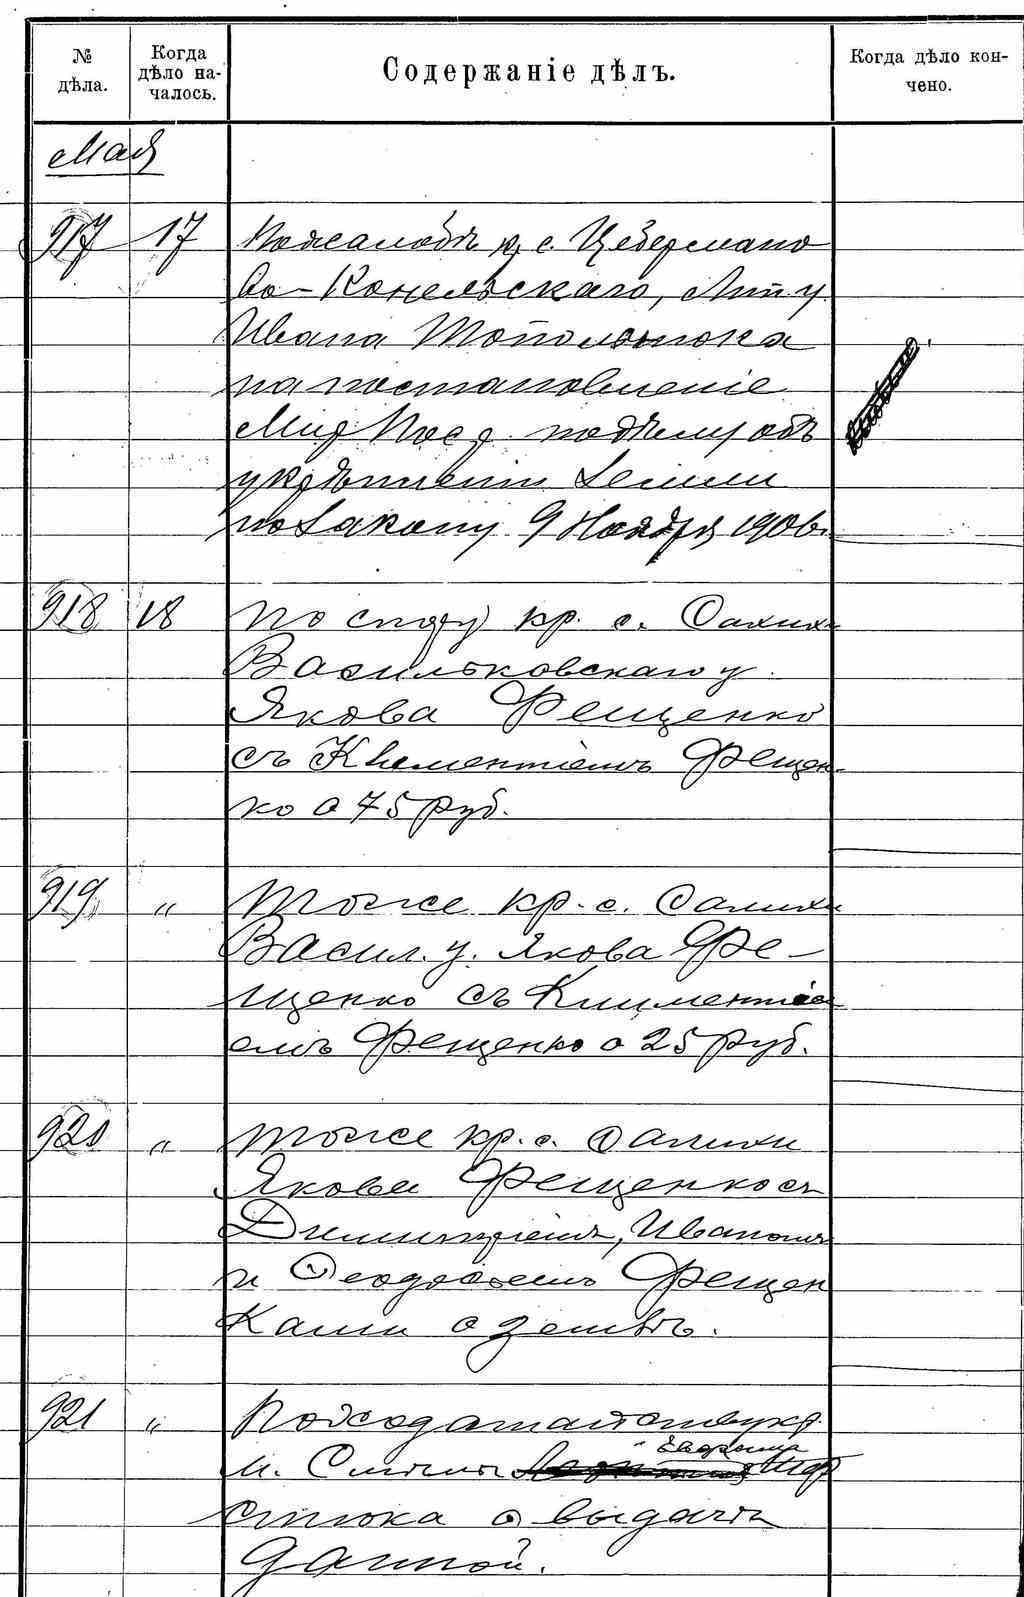 № дѣла.
Когда дѣло на-
чалось.
Содержаніе дѣлъ.
Когда дѣло кон-
чено.
Мая
917 17 По жалобѣ кр. с. Цебермано
во-Конельскаго, Лип. у.
Ивана Тополюка
на постановленіе
Мир Поср. по дѣлу объ
укрѣпленіи земли
по закону 9 Ноября 1906 г.
918 18 По спору кр. с. Салихи
Васильковскаго у.
Якова Фещенко
съ Климентіемъ Фещен-
ко о 75 руб.
919 " Тоже кр. с. Салихи
Васил. у. Якова Фе-
щенко съ Климентіе
емъ Фещенко о 25 руб.
920 " Тоже кр. с. Салихи
Якова Фещенко съ
Димитріемъ, Иваномъ
и Феодосіемъ Фещен
ками о землѣ.
921 " По ходатайству кр.
Евфрема
м. Смѣлы
о выдачѣ
данной.